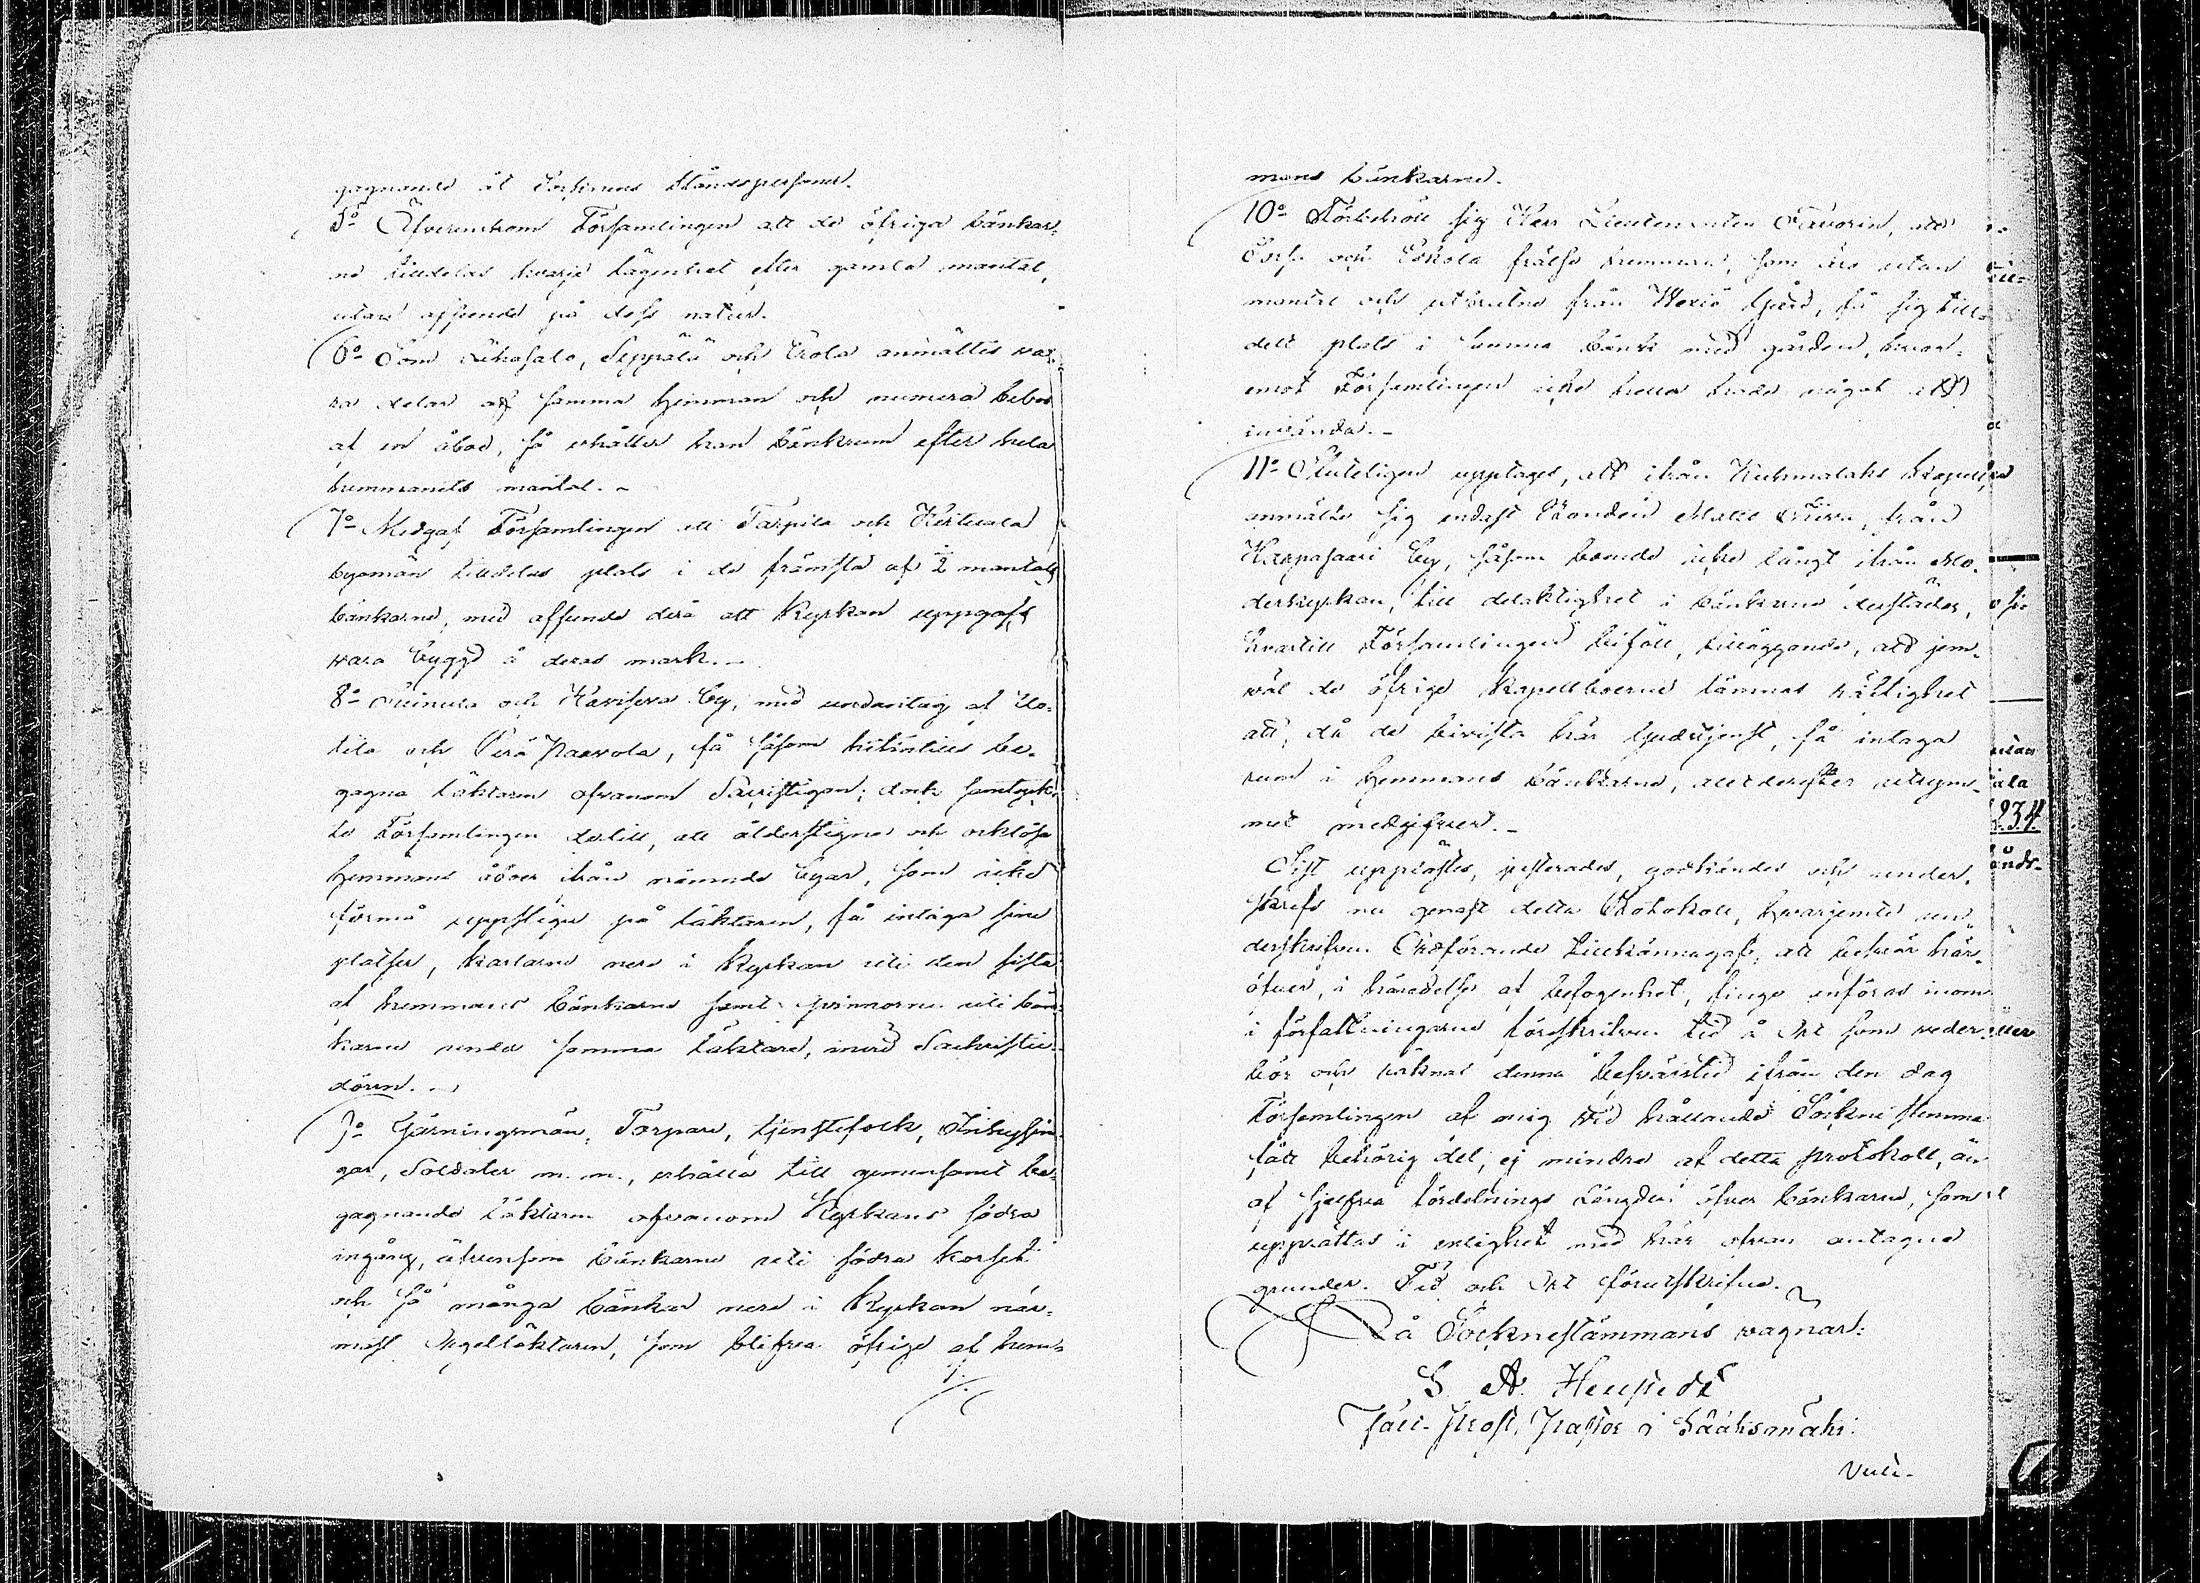 gagnande åt Socknens Ståndspersoner.
5o Öfverenskom Församlingen att de öfriga bänkar-
ne tilldelas hvarje lägenhet efter gamla mantal,
utan afseende på dess natur.
6o Som Uhosalo, Seppälä och Erola anmältes va-
ra delar af samma hemman och numera bebos
af en åbo, så erhåller han bänkrum efter hela
hemmanets mantal. -
7o Medgaf Församlingen att Tarpila och Kertuala
byamän tilldelas plats i de främsta af 2 mantals
bänkarne, med afseende derå att Kyrkan uppgafs
vara byggd å deras mark. -
8o och by, med undantag af Uo-
tila och Perä Paavola, få såsom hittintills be-
gagna läktaren ofvanom Sacristigan; dock samtyck-
te Församlingen dertill, att ålderstigna och orklösa
hemmans åboer ifrån nämnde byar, som icke
förmå uppstiga på läktaren, få intaga sine
platser, karlarne nere i Kyrkan uti den sista
af hemmans bänkarne samt qvinnorna uti bän-
karne under samma läktare, invid Sachristie-
dören. -
9o Gärningsmän, Torpare, tjenstefolk, Inhysin-
gar, Soldater m. m., erhålla till gemensamt be-
gagnande läktaren ofvanom Kyrkans södra
ingång, äfvensom bänkarne uti södra korset
och så många bänkar nere i Kyrkan när-
mast Orgelläktaren, som blifva öfrige af hem-
mans bänkarne.
10o Förbehöll sig Herr Lieutenanten Favorin, att
Torp och Eskola frälse hemman, som äro utan
mantal och utbrutne från Wexiö Gård, få sig till-
delt plats i samma bänk med gården, hvar-
emot Församlingen icke heller hade något att
invända. -
11o Sluteligen upptages, att ifrån Kuhmalahs kapell,
anmälte sig endast Bonden Matts från
Karpasaari by, såsom boende icke långt ifrån Mo-
derkyrkan, till delaktighet i bänkarne derstädes,
hvartill Församlingen biföll, tilläggande, att jem-
väl de öfrige Kapellboerne lämnas rättighet
att, då de bivista här Gudstjenst, få intaga
rum i hemmans bänkarne, allt derefter utrym-
met medgifver. -
Sist upplästes, justerades, godkändes och under-
skrefs nu genast detta Protokoll, hvarjemte un-
derskrifven Ordförande tillkännagaf, att besvär här-
öfver, i händelse af befogenhet, finge anföras inom
i författningarne föreskrifven tid å Ort som veder-
bör och räknas denna besvärstid ifrån den dag
Församlingen af mig vid hållande Sockne stemma
fått behörig del, ej mindre af detta protokoll, än
af sjelfva fördelnings Längden öfver bänkarne, som
upprättas i enlighet med här ofvan antagne
grunder. Tid och Ort förutskrifne.
På Sockne stämmans vagnar:
S. A.
Pastor i Sääksmäki.
234